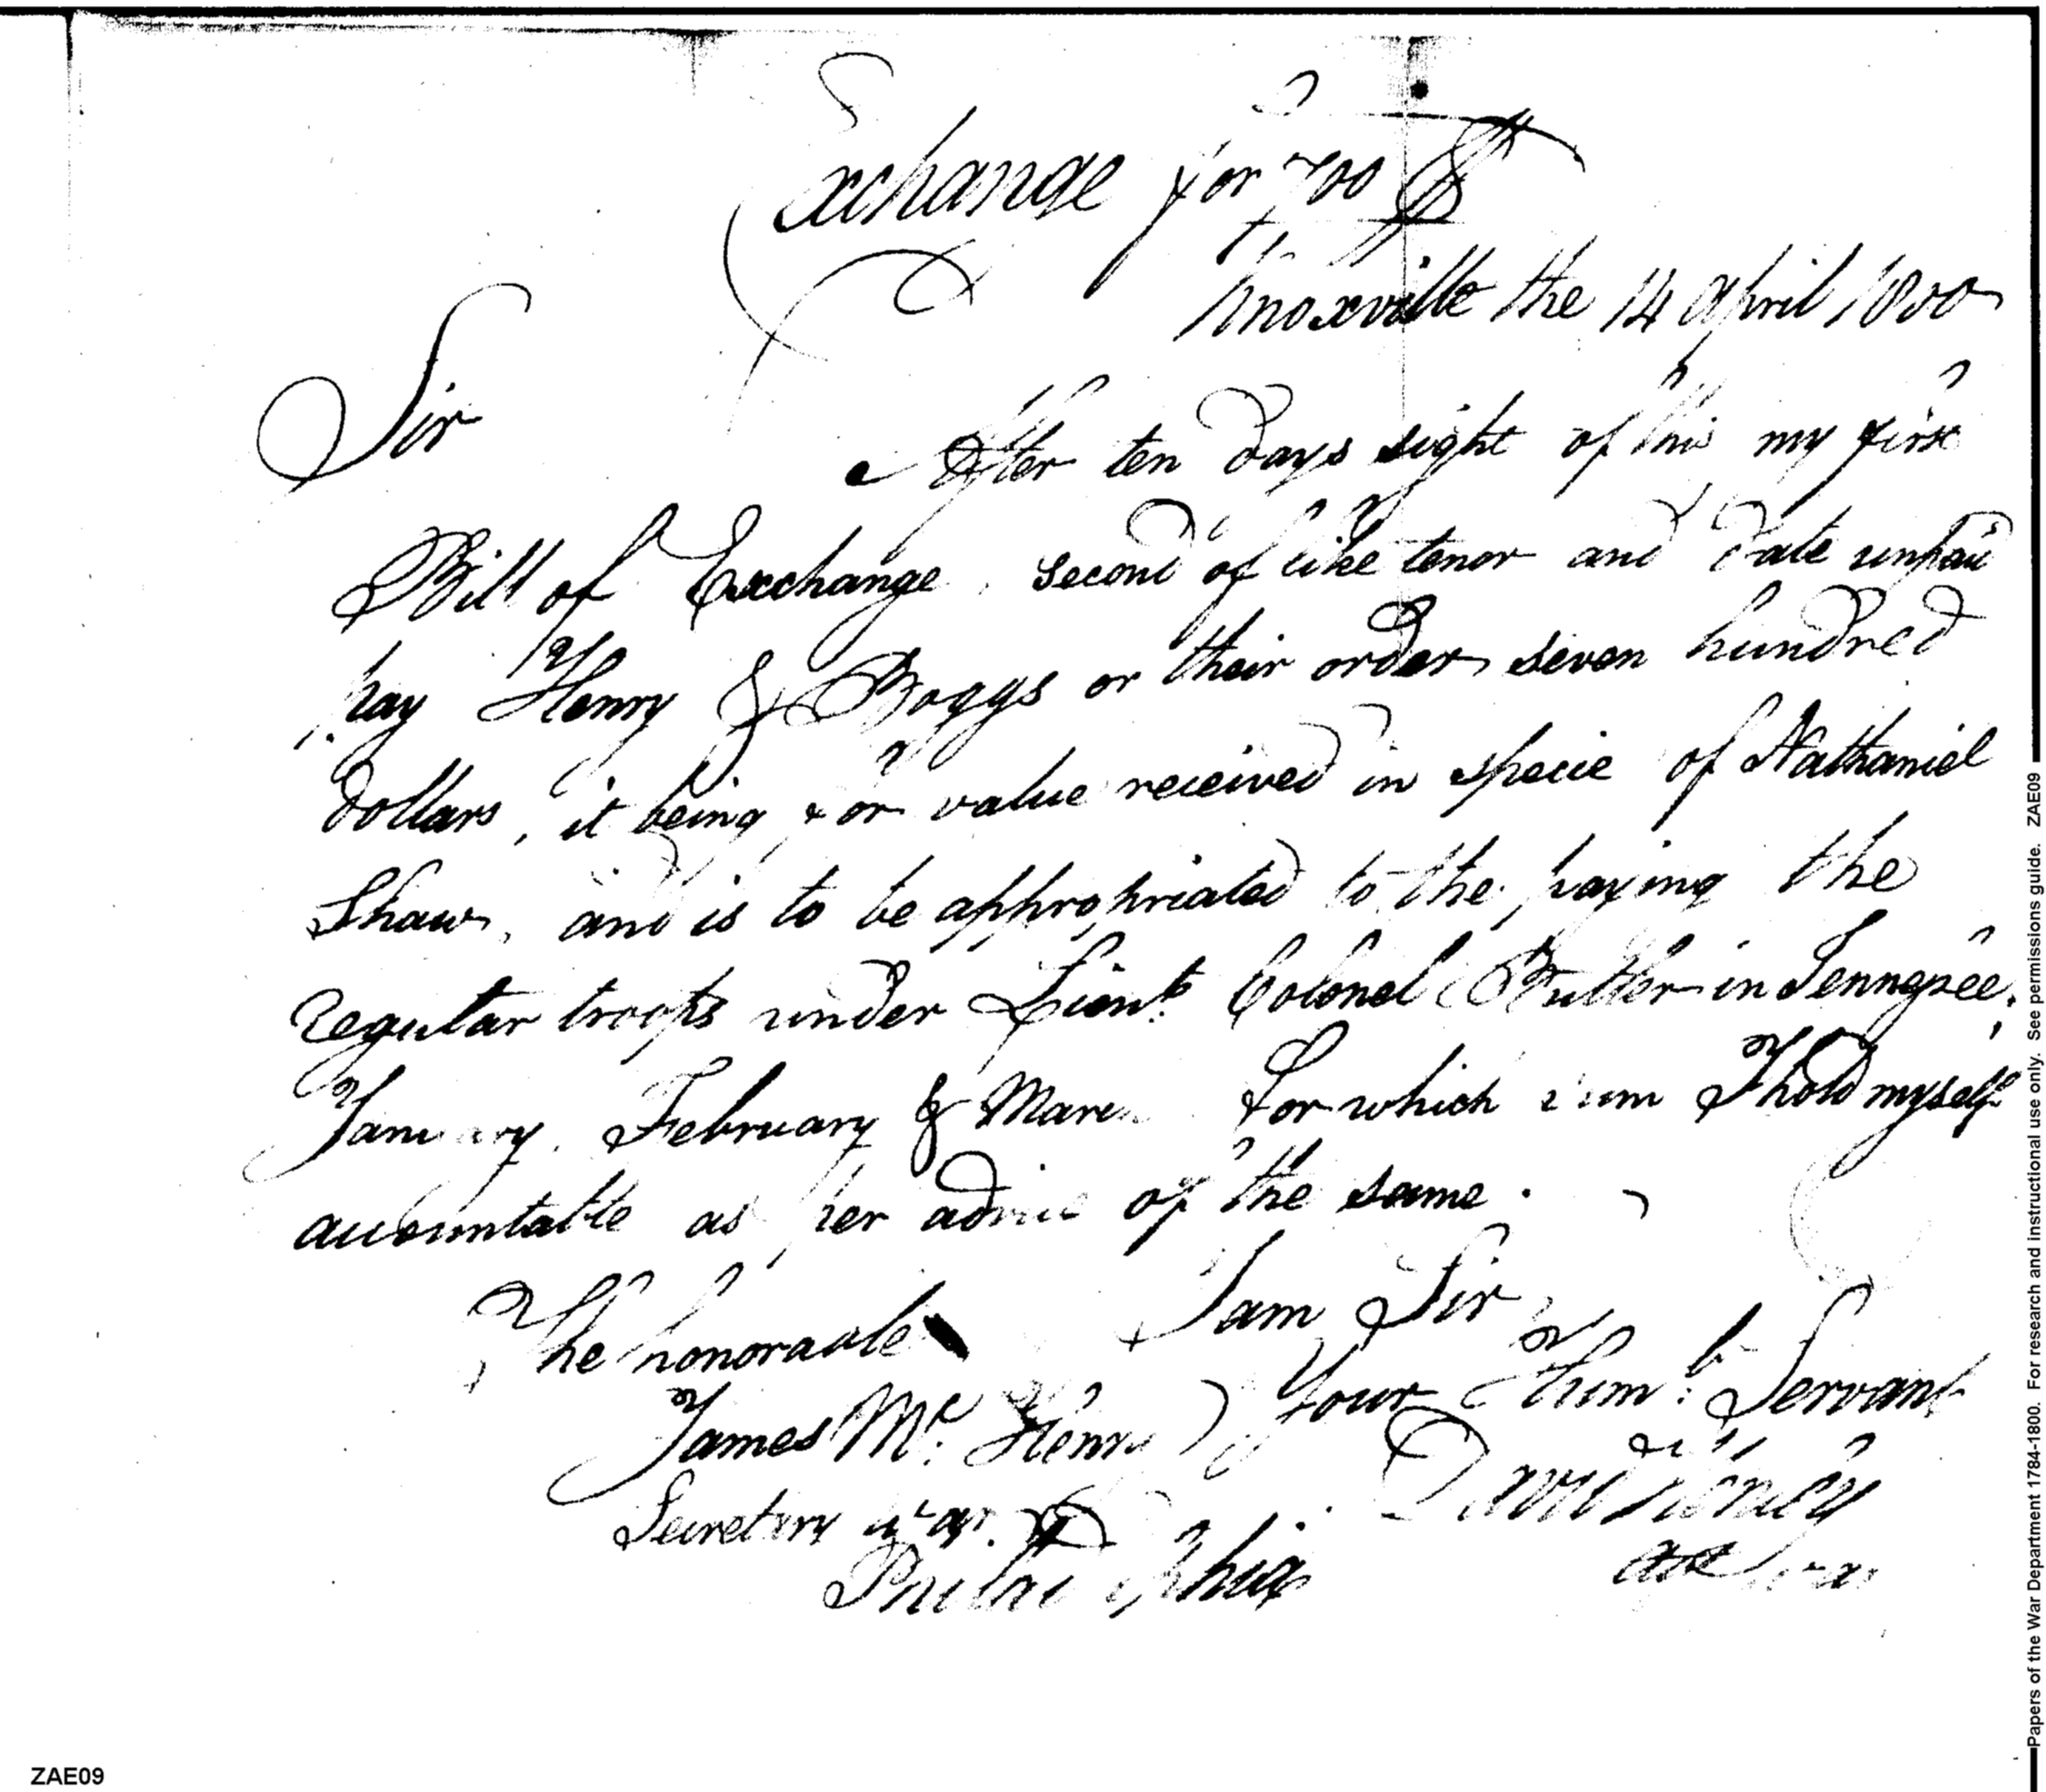 Exchange for 700 $
Knoxville the 14 April 1800
Sir
After ten days sight of this my first
Bill of Exchange, second of like tenor and date unpaid
pay Henry & Boggs or their order seven hundred
dollars, it being for value received in specie of Nathaniel
Shaw, and is to be appropriated to the paying the
regular troops under Lieut. Colonel Butler in Tennessee,
January, February & March for which sum I hold myself
accountable as per advice of the same.
I am Sir
The honorable
Your Hum: b Servant
James Mc. Henry
David Henley
Secretary war.
Philadelphia
Papers of the War Department 1784-1800. For research and instructional use only. See permissions guide. ZAE09
ZAE09